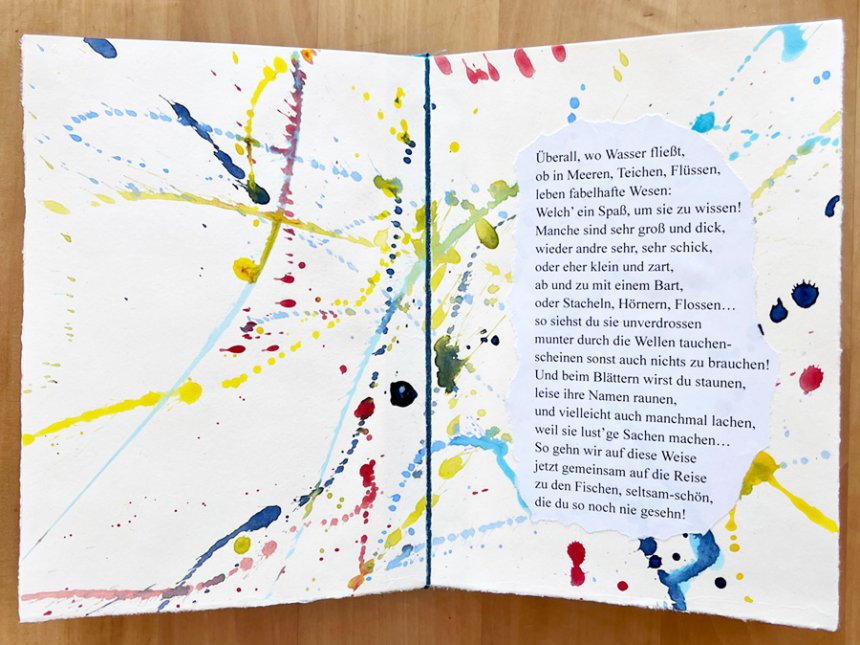 Überall, wo Wasser fließt,
ob in Meeren, Teichen, Flüssen,
leben fabelhafte Wesen:
Welch’ ein Spaß, um sie zu wissen!
Manche sind sehr groß und dick,
wieder andre sehr, sehr schick,
oder eher klein und zart,
ab und zu mit einem Bart,
oder Stacheln, Hörnern, Flossen…
so siehst du sie unverdrossen
munter durch die Wellen tauchen-
scheinen sonst auch nichts zu brauchen!
Und beim Blättern wirst du staunen,
leise ihre Namen raunen,
und vielleicht auch manchmal lachen,
weil sie lust’ge Sachen machen…
So gehn wir auf diese Weise
jetzt gemeinsam auf die Reise
zu den Fischen, seltsam-schön,
die du so noch nie gesehn!